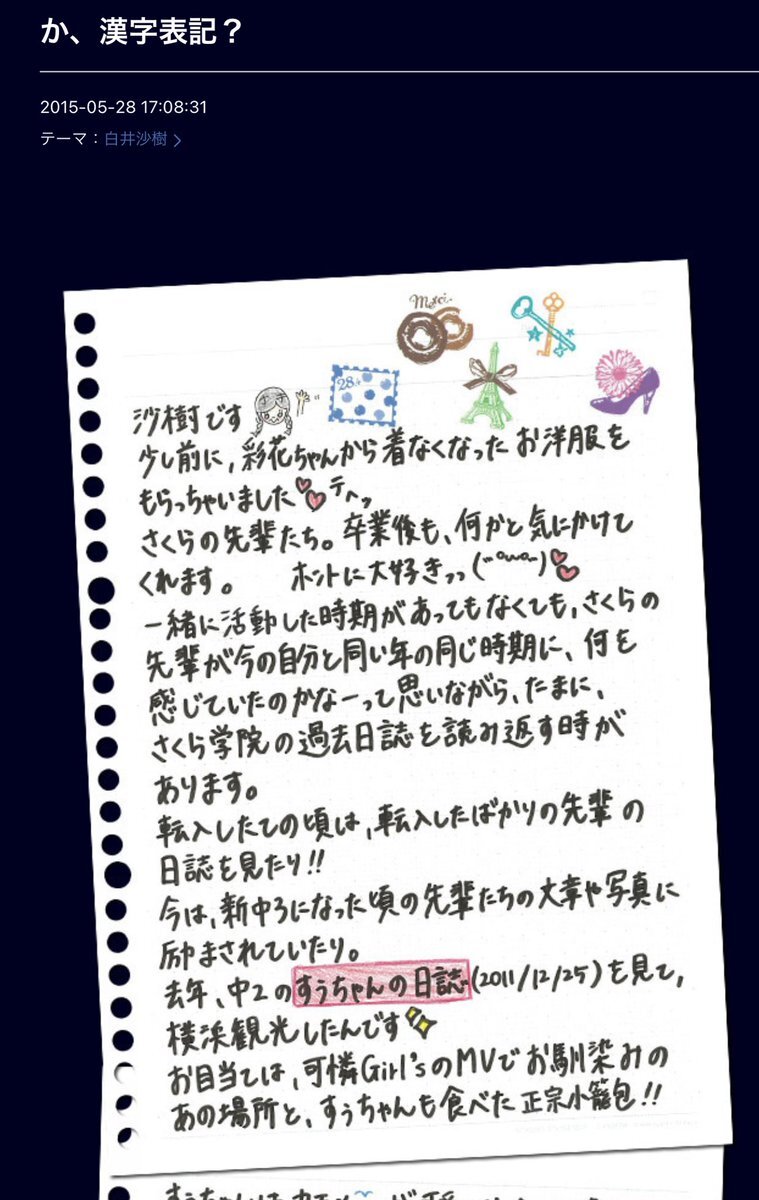 か、漢字表記？
2015-05-28 17:08:31
テーマ：白井沙樹
Merci
28
沙樹です
少し前に,彩花ちゃんから着なくなったお洋服を
もらっちゃいました テヘッ
さくらの先輩たち。卒業後も、何かと気にかけて
くれます。 ホントに大好きっっ
一緒に活動した時期があってもなくても,さくらの
先輩が今の自分と同い年の同じ時期に、何を
感じていたのかなーって思いながら、たまに、
さくら学院の過去日誌を読み返す時が
あります。
転入したての頃は,転入したばかりの先輩の
日誌を見たり!!
今は,新中3になった頃の先輩たちの文章や写真に
励まされていたり。
去年、中2のすうちゃんの日誌(2011/12/25)を見て,
横浜観光したんです
お目当ては,可憐Girl'sのMVでお馴染みの
あの場所と、すうちゃんも食べた正宗小籠包!!
すうちゃんは